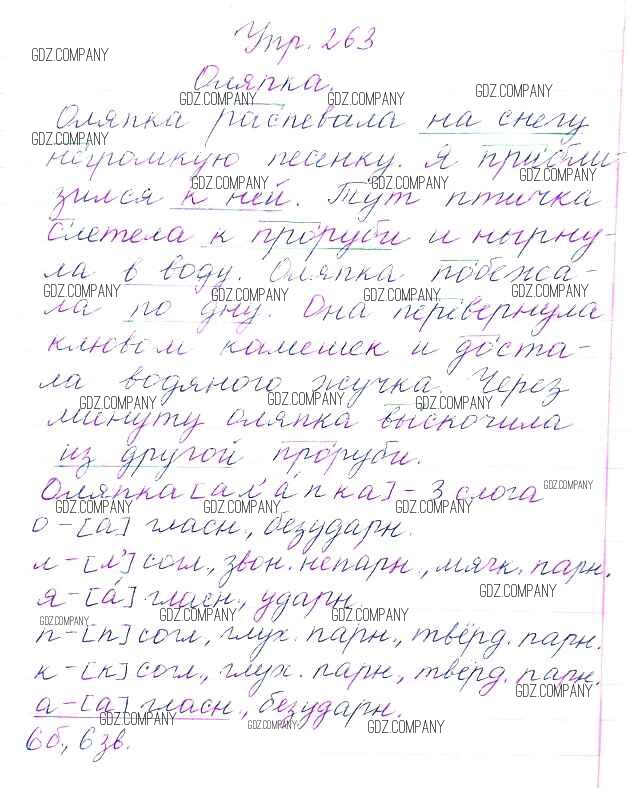 Упр. 263
GDZ.COMPANY
Оляпка.
GDZ.COMPANY GDZ.COMPANY GDZ.COMPANY
Оляпка распевала на снегу
GDZ.COMPANY
негромкую песенку. Я прибли-
GDZ.COMPANY GDZ.COMPANY GDZ.COMPANY
зился к ней. Тут птичка
слетела к проруби и нырну-
ла в воду. Оляпка побежа-
GDZ.COMPANY GDZ.COMPANY GDZ.COMPANY GDZ.COMPANY
ла по дну. Она перевернула
клювом камешек и доста-
ла водяного жучка. Через
GDZ.COMPANY GDZ.COMPANY GDZ.COMPANY
минуту оляпка выскочила
из другой проруби.
Оляпка [ал'апка] - 3 слога
GDZ.COMPANY
GDZ.COMPANY GDZ.COMPANY GDZ.COMPANY
о - [а] гласн., безударн.
л - [л'] согл., звон. непарн., мягк. парн.
GDZ.COMPANY
я - [а́] гласн., ударн.
GDZ.COMPANY GDZ.COMPANY GDZ.COMPANY
п - [п] согл., глух. парн., твёрд. парн.
к - [к] согл., глух. парн., твёрд. парн.
GDZ.COMPANY
а - [а] гласн., безударн.
GDZ.COMPANY GDZ.COMPANY GDZ.COMPANY
6б., 6зв.